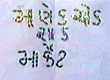 મણેકચોક
શાક
માર્કેટ